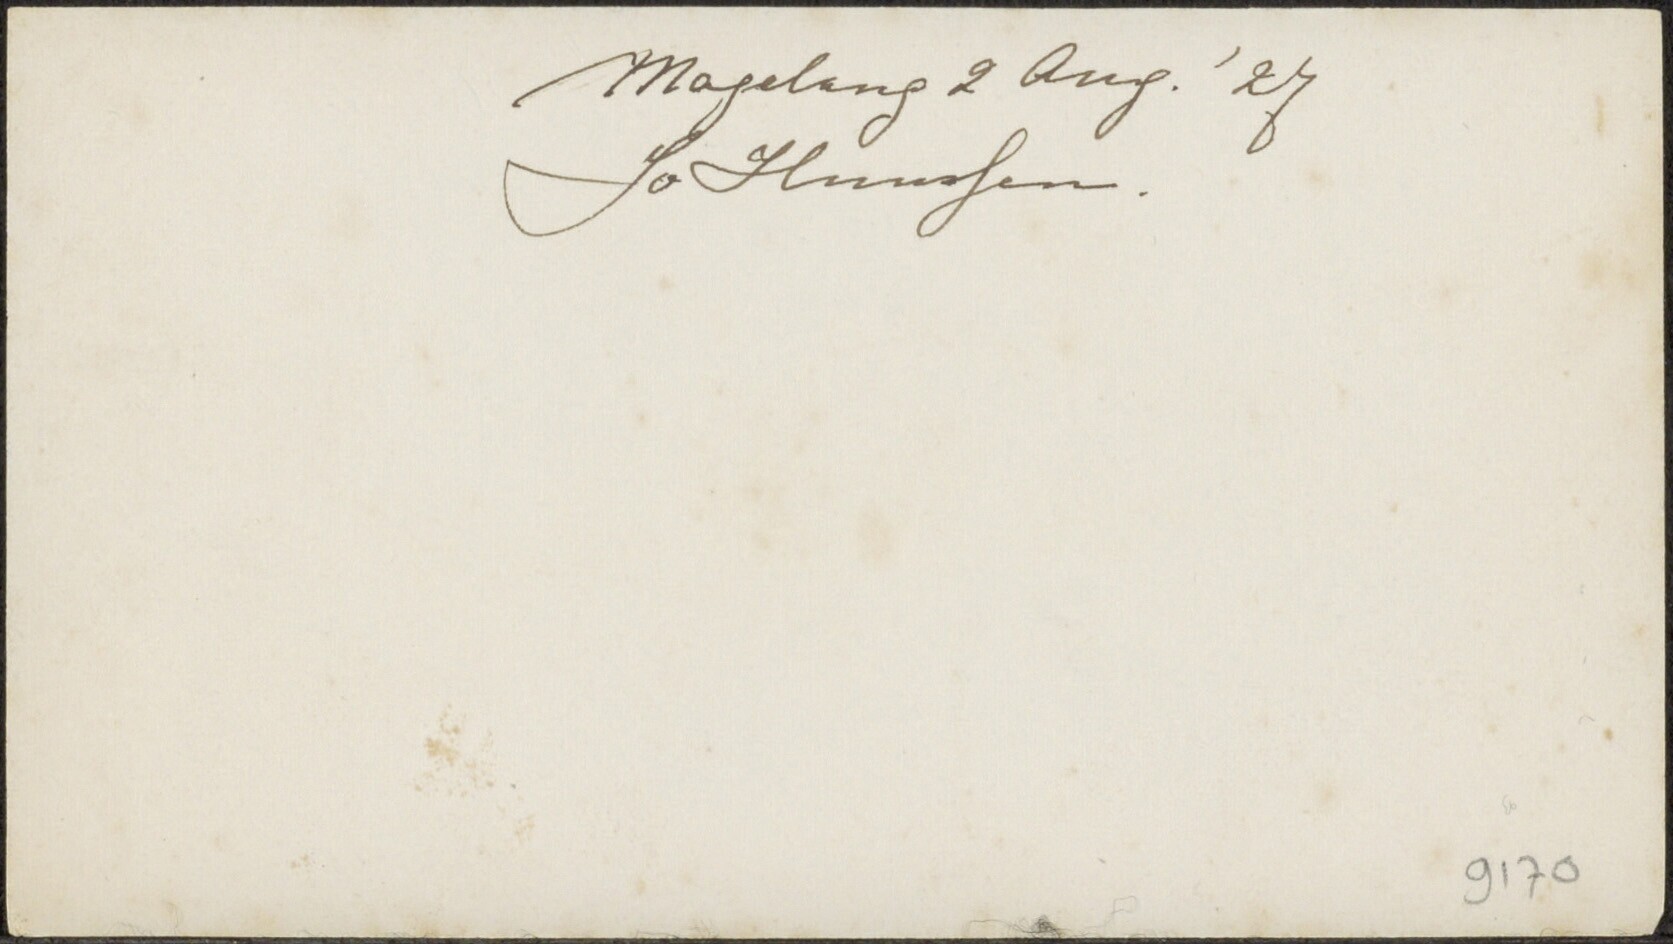 Magelang 2 Aug. '27
Jo
9170